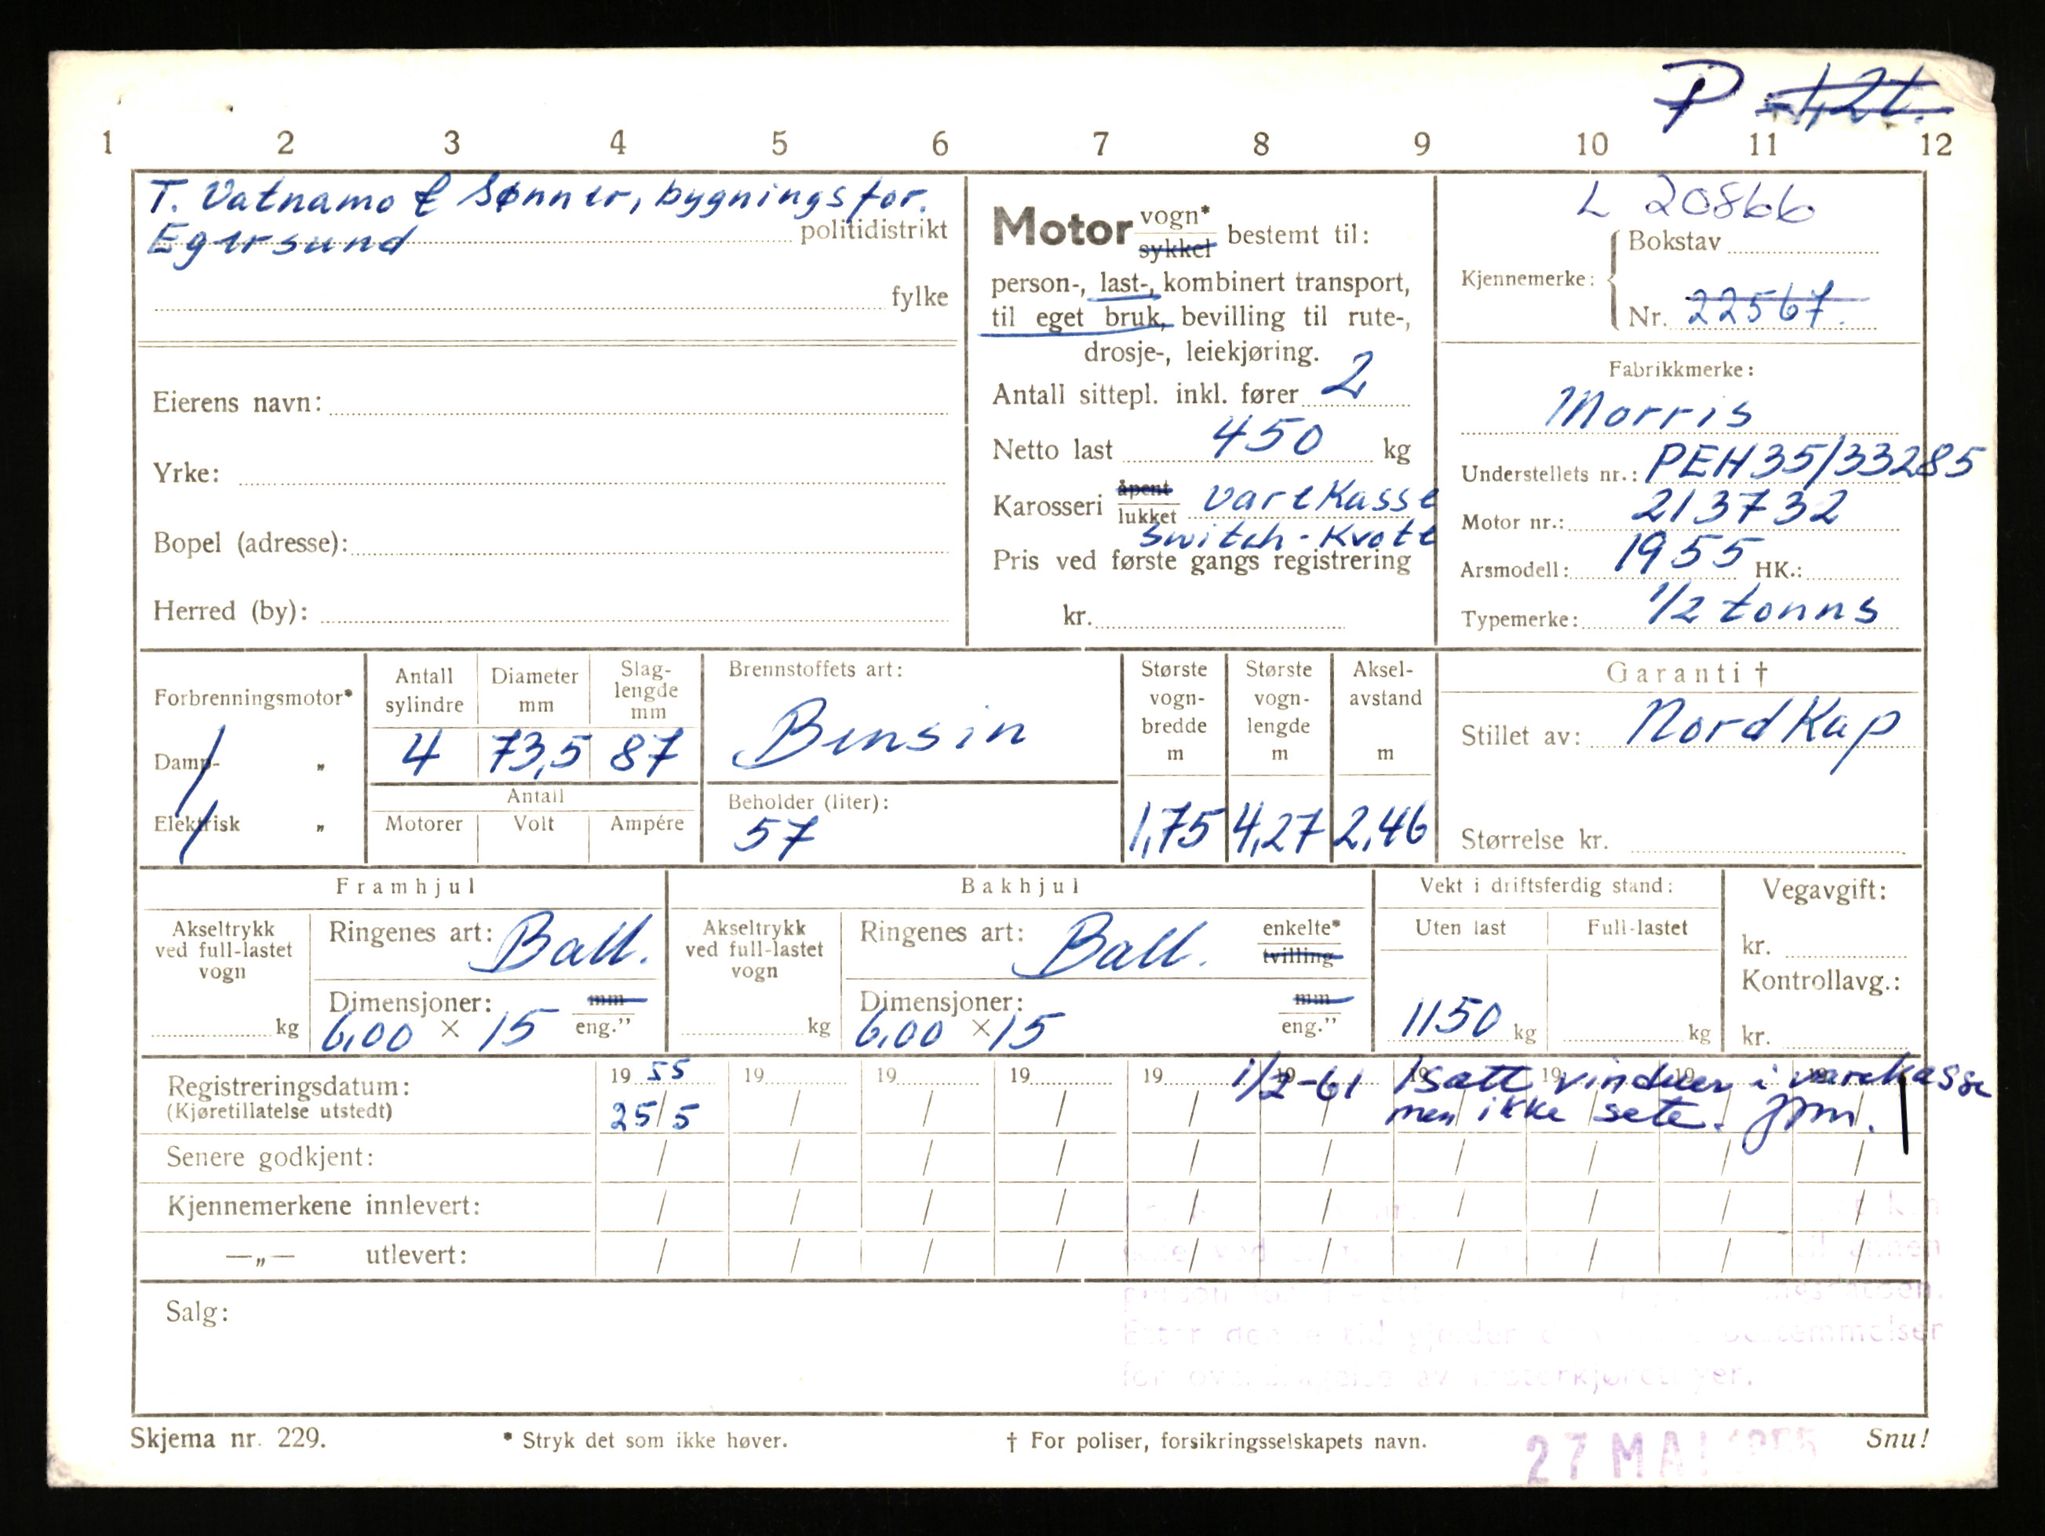 P 1,2t.
1 2 3 4 5 6 7 8 9 10 11 12
T. Vatnamo & Sønner, bygningsfor.
Egersund politidistrikt
fylke
Eierens navn:
Yrke:
Bopel (adresse):
Herred (by):
Motor vogn* sykkel bestemt til:
person-, last-, kombinert transport,
til eget bruk, bevilling til rute-,
drosje-, leiekjøring.
Antall sittepl. inkl. fører 2
Netto last 450 kg
Karosseri åpent lukket varekasse
switch-kvote
Pris ved første gangs registrering
kr.
L 20866
Kjennemerke: Bokstav
Nr. 22567.
Fabrikkmerke:
Morris
Understellets nr.: PEH35/33285
Motor nr.: 213732
Arsmodell: 1955 HK.:
Typemerke: 1/2 tonns
Forbrenningsmotor*
Damp- „
Elektrisk „
Antall sylindre
4
Diameter mm
73,5
Slag-lengde mm
87
Antall
Motorer Volt Ampére
Brennstoffets art:
Bensin
Beholder (liter):
57
Største vogn-bredde m
1,75
Største vogn-lengde m
4,27
Aksel-avstand m
2,46
Garanti †
Stillet av: Nordkap
Størrelse kr.
Framhjul
Akseltrykk ved full-lastet vogn
kg
Ringenes art: Ball.
Dimensjoner: mm
6,00 × 15 eng."
Bakhjul
Akseltrykk ved full-lastet vogn
kg
Ringenes art: Ball. enkelte* tvilling
Dimensjoner: mm
6,00 × 15 eng."
Vekt i driftsferdig stand:
Uten last Full-lastet
1150 kg kg
Vegavgift:
kr.
Kontrollavg.:
kr.
Registreringsdatum: 19 55 19 19 19 19 1/2-61 Isatt vinduer i varekasse
(Kjøretillatelse utstedt) 25/5 men ikke sete.
Senere godkjent:
Kjennemerkene innlevert:
—„— utlevert:
Salg:
for av motorkjøretøyer.
Skjema nr. 229. * Stryk det som ikke høver. † For poliser, forsikringsselskapets navn. 27 MAI 1955 Snu!